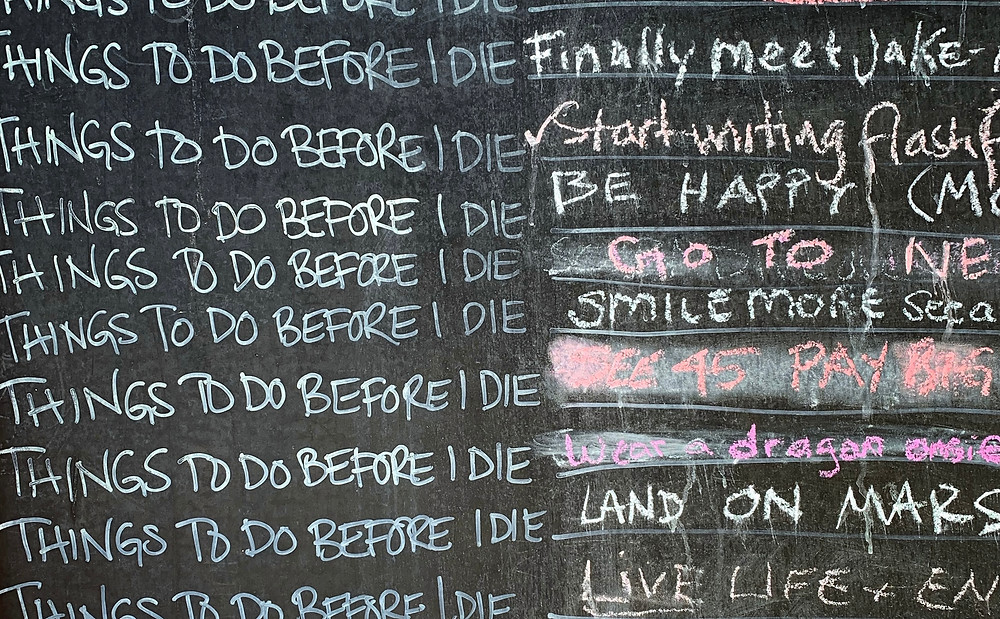 THINGS TO DO BEFORE I DIE
THINGS TO DO BEFORE I DIE Finally meet Jake-
THINGS TO DO BEFORE I DIE ✓Start writing flash f
THINGS TO DO BEFORE I DIE BE HAPPY (MO
THINGS TO DO BEFORE I DIE GO TO NE
THINGS TO DO BEFORE I DIE SMILE MORE Seea
THINGS TO DO BEFORE I DIE SEE 45 PAY BIG
THINGS TO DO BEFORE I DIE Wear a dragon onsie
THINGS TO DO BEFORE I DIE LAND ON MARS
THINGS TO DO BEFORE I DIE LIVE LIFE + EN